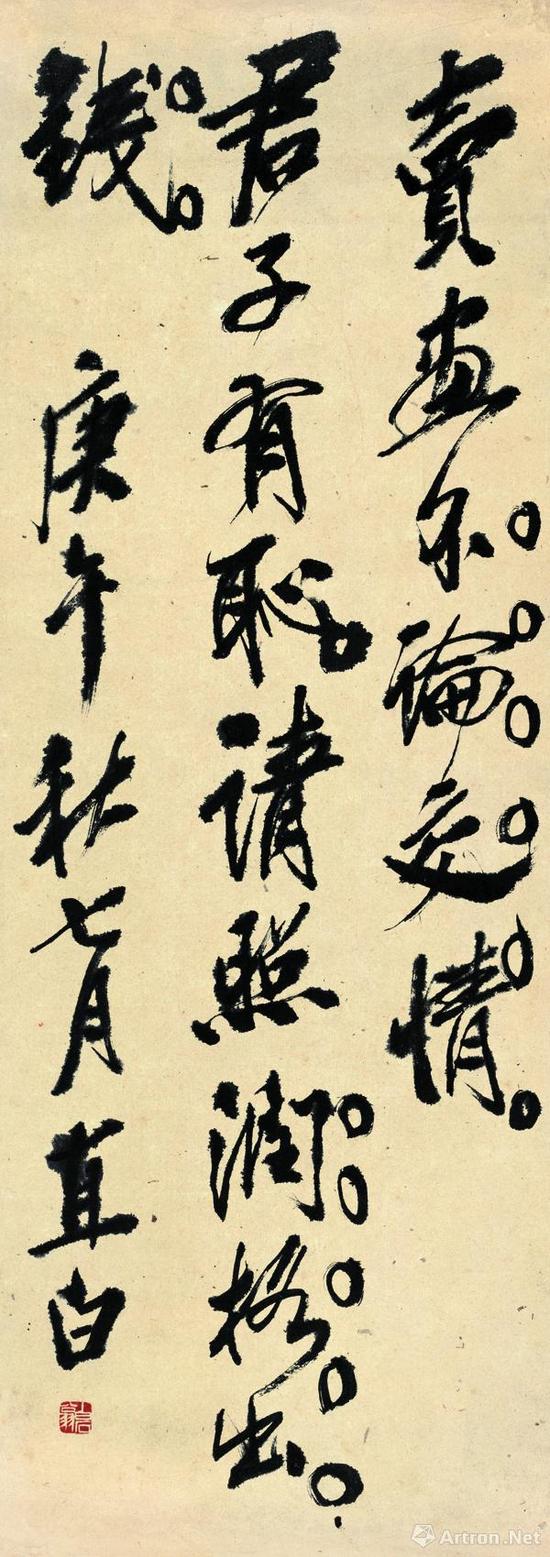 賣畫不論交情。
君子有恥請照潤格出
錢。 庚午秋七月直白
Artron.Net